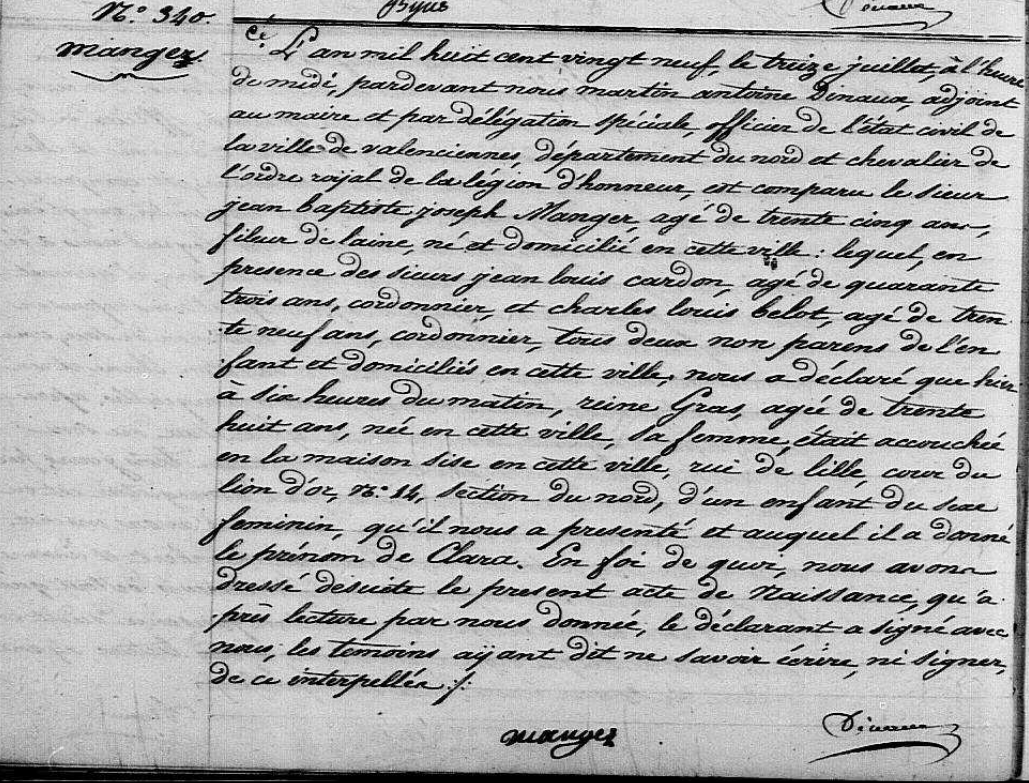 N.° 340.
Mangez.
Dinaux
Cé. L'an mil huit cent vingt neuf, le treize juillet, à l'heure
de midi, pardevant nous martin antoine Dinaux, adjoint
au maire et par délégation spéciale, officier de l'état civil de
la ville de valenciennes, département du nord et chevalier de
l'ordre royal de la légion d'honneur, est comparu le sieur
jean baptiste joseph Manger, agé de trente cinq ans,
fileur de laine, né et domicilié en cette ville : lequel, en
presence des sieurs jean louis cardon, agé de quarante
trois ans, cordonnier, et charles louis belot, agé de tren
te neuf ans, cordonnier, tous deux non parens de l'en
fant et domiciliés en cette ville, nous a déclaré que hier
à six heures du matin, reine Gras, agée de trente
huit ans, née en cette ville, sa femme, était accouchée
en la maison sise en cette ville, rue de lille, cour du
lion d'or, n.° 14, section du nord, d'un enfant du sexe
feminin, qu'il nous a presenté et auquel il a donné
le prénom de Clara. En foi de quoi, nous avons
dressé desuite le present acte de Naissance, qu'a
près lecture par nous donnée, le déclarant a signé avec
nous, les temoins aÿant dit ne savoir écrire, ni signer,
de ce interpellés ./.
mangez
Dinaux